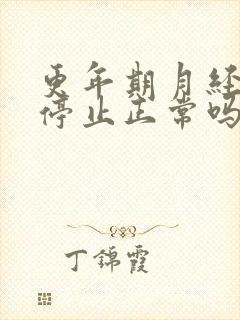 更年期月经
停止正常吗
丁锦霞